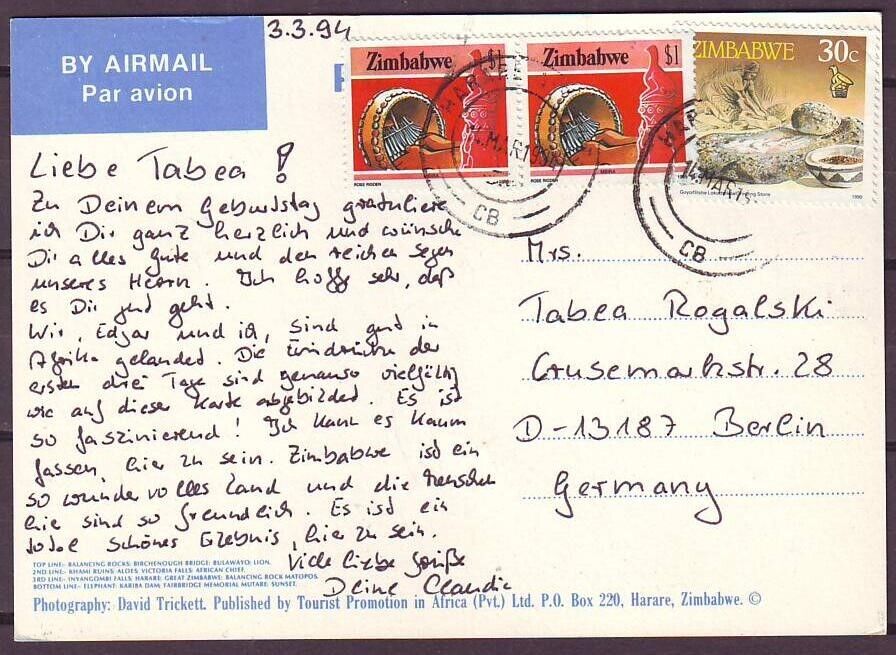 3.3.94
BY AIRMAIL
Par avion
Zimbabwe $1
ROSE RIGDEN
Zimbabwe $1
MBIRA
ZIMBABWE 30c
1990
HARARE
MAR 199
CB
HAR
14 MAR 19
CB
Liebe Tabea !
Zu Deinem Geburtstag gratuliere
ich Dir ganz herzlich und wünsche
Dir alles Gute und den reichen Segen
unseres Herrn. Ich hoffe sehr, daß
es Dir gut geht.
Wir, Edgar und ich, sind gut in
Afrika gelandet. Die Eindrücke der
ersten drei Tage sind genauso vielfältig
wie auf dieser Karte abgebildet. Es ist
so faszinierend! Ich kann es kaum
fassen, hier zu sein. Zimbabwe ist ein
so wundervolles Land und die Menschen
hie sind so freundlich. Es ist ein
schönes Erlebnis, hier zu sein.
Viele liebe Grüße
Deine Claudia
Mrs.
Tabea Rogalski
Crusemarkstr. 28
D-13187 Berlin
Germany
TOP LINE:- BALANCING ROCKS: BIRCHENOUGH BRIDGE: BULAWAYO: LION.
2ND LINE:- KHAMI RUINS: ALOES: VICTORIA FALLS: AFRICAN CHIEF.
3RD LINE:- INYANGOMBI FALLS: HARARE: GREAT ZIMBABWE: BALANCING ROCK MATOPOS.
BOTTOM LINE:- ELEPHANT: KARIBA DAM: FAIRBRIDGE MEMORIAL MUTARE: SUNSET.
Photography: David Trickett. Published by Tourist Promotion in Africa (Pvt.) Ltd. P.O. Box 220, Harare, Zimbabwe. ©